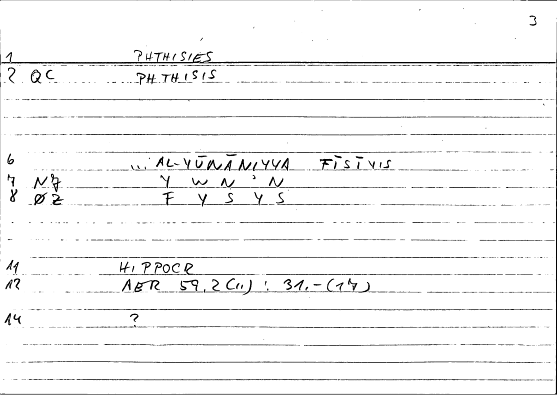 3
1 PHTHISIES
2 QC PHTHISIS
6 ... AL-YŪNĀNIYYA FĪSĪYIS
7 NZ Y W N ' N
8 ØZ F Y S Y S
11 HIPPOCR
12 AER 59.2(11) : 31.-(17)
14 ?